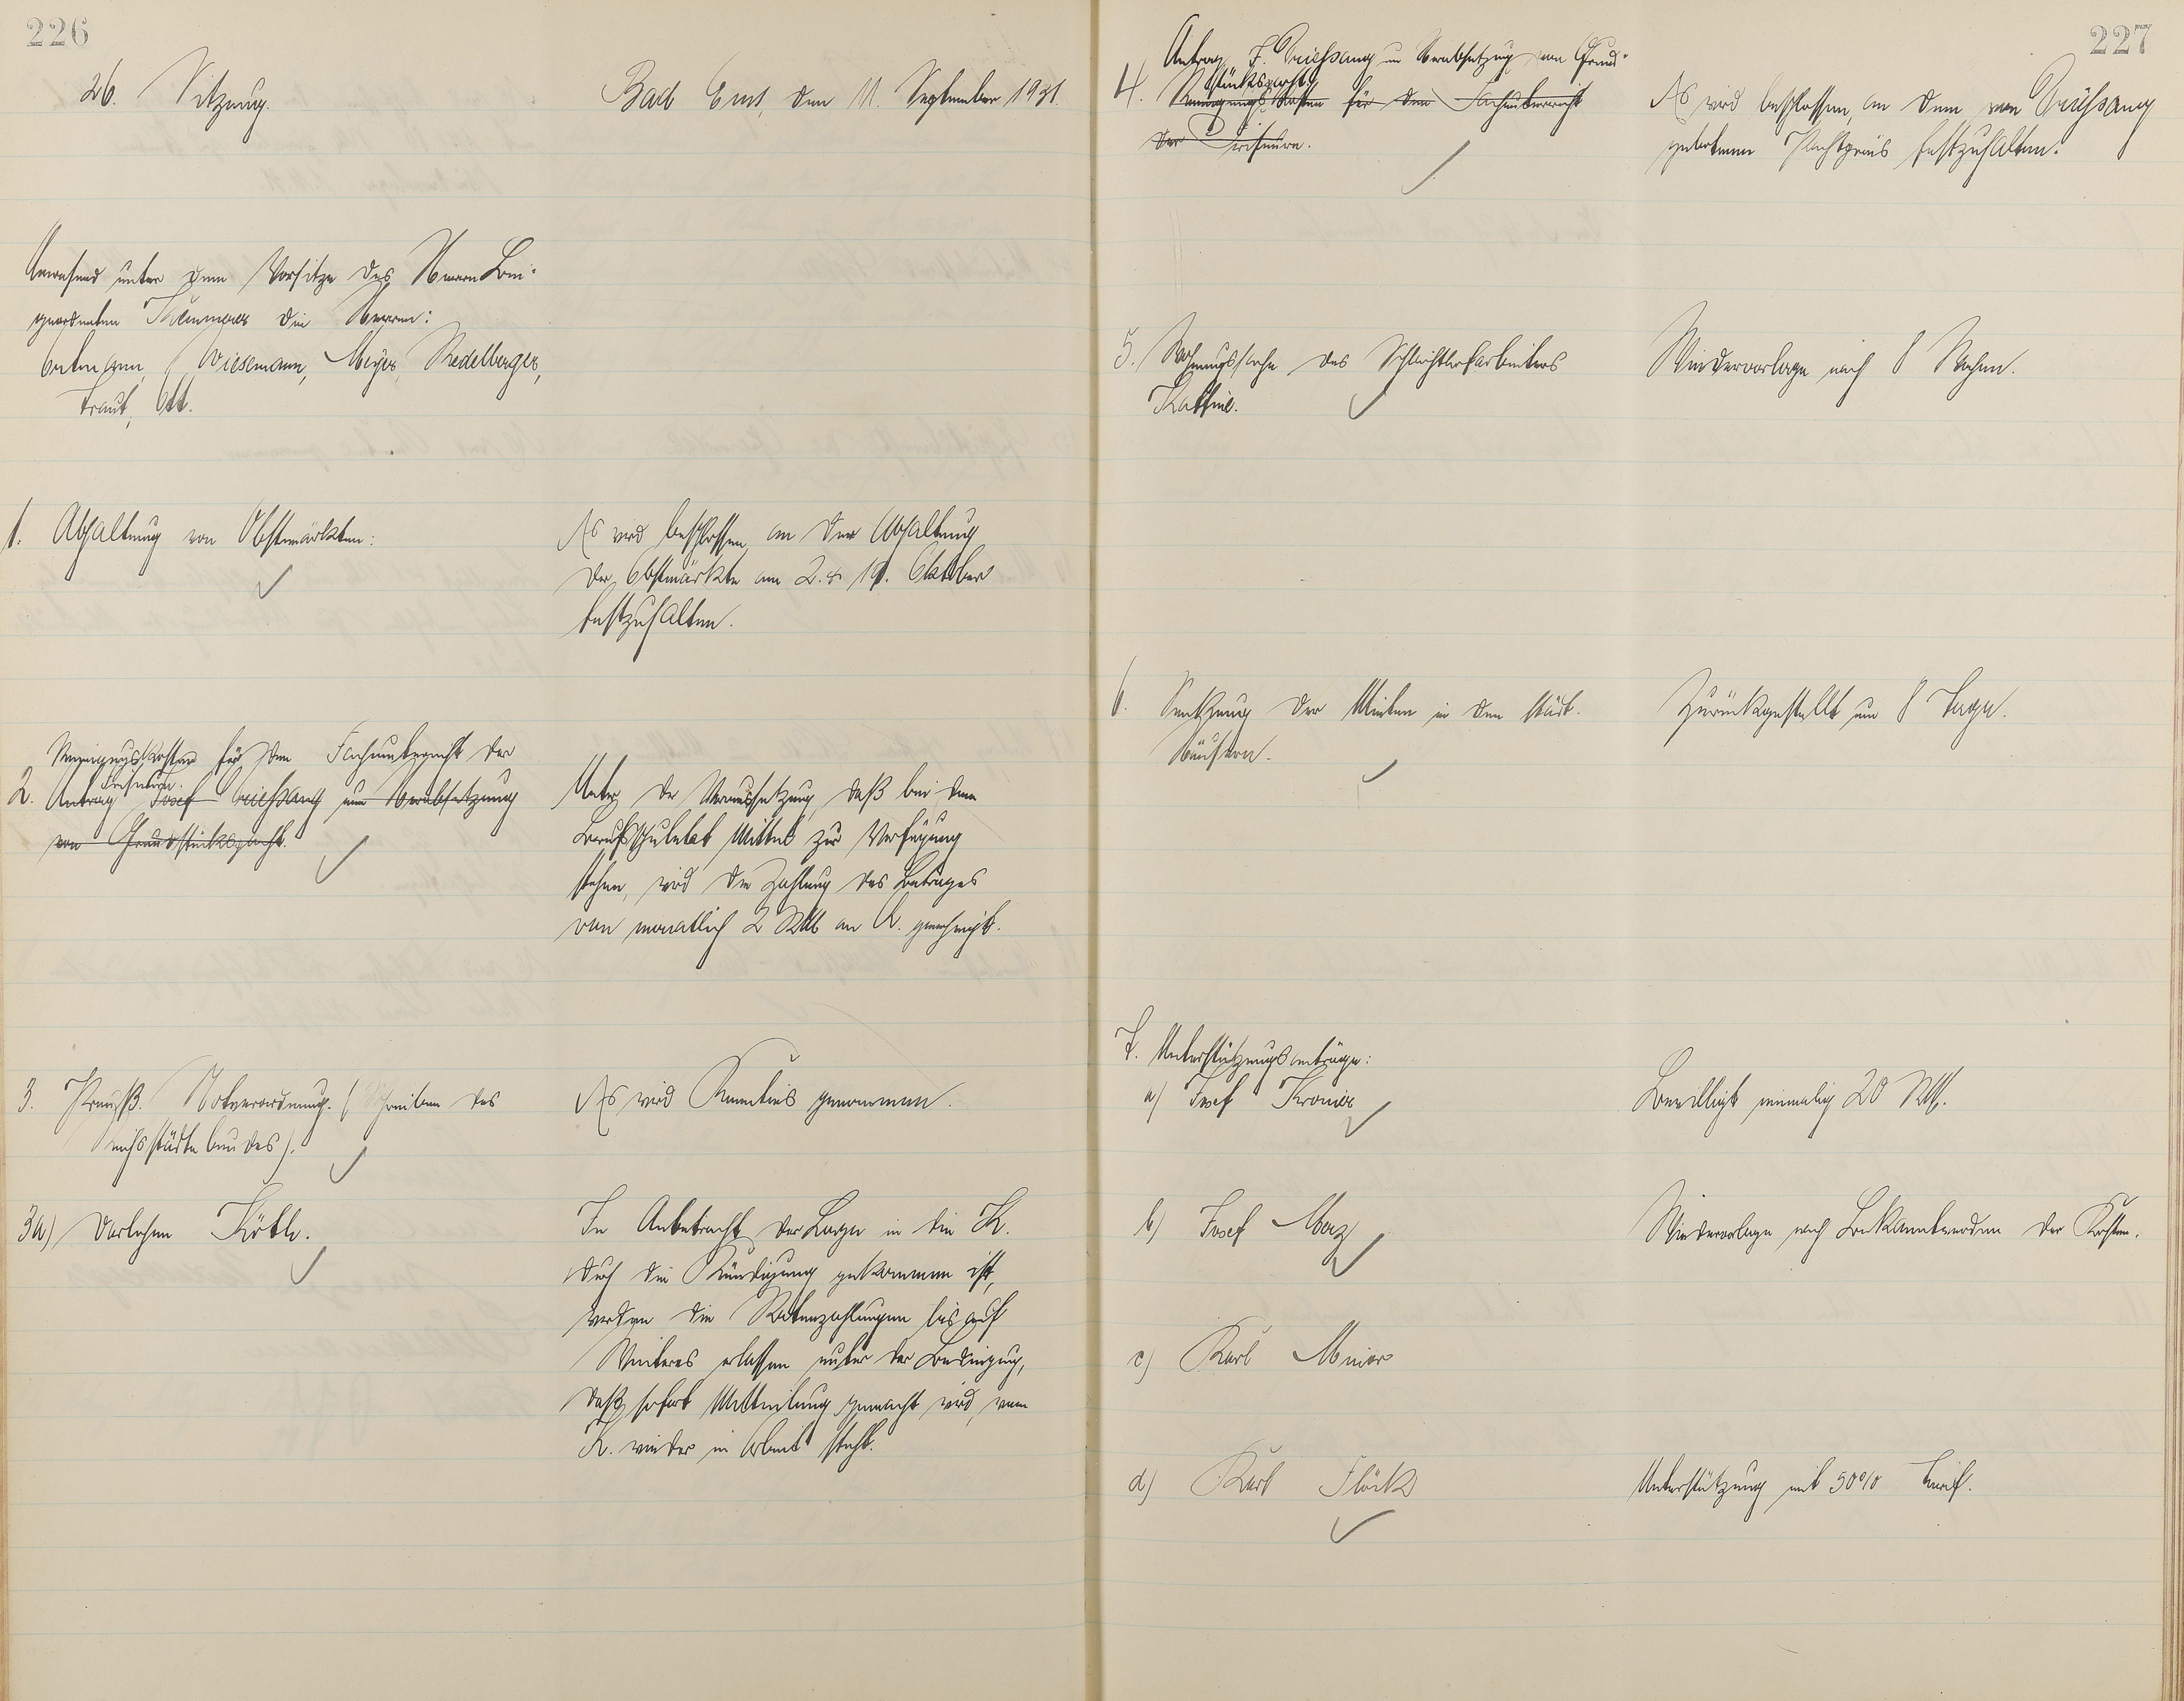 226
26. Sitzung.
Bad Ems, den 11. September 1931.
Anwesend unter dem Vorsitze des Herrn Bei-
geordneten die Herren:
Wiesemann, Meyer, Redelberger,
Traut, Ott.
1. Abhaltung von Obstmärkten:
Es wird beschlossen, an der Abhaltung
der Obstmärkte am 2. & Oktober
festzuhalten.
Reinigungskosten für den Fachunterricht der
Friseure.
2. Antrag Josef um Herabsetzung
von Grundstückspacht.
Unter der Voraussetzung, daß bei dem
Berufsschuletat Mittel zur Verfügung
stehen, wird die Zahlung des Betrages
von monatlich 2 RM an genehmigt.
3. Preuß. Notverordnung. (Schreiben des
Reichsstädtebundes).
Es wird Kenntnis genommen.
3a) Darlehen
In Anbetracht der Lage in die K.
durch die Kündigung gekommen ist,
werden die Ratenzahlungen bis auf
Weiteres erlassen unter der Bedingung,
daß sofort Mitteilung gemacht wird, wenn
K. wieder in Arbeit steht.
227
Antrag J. um Herabsetzung von Grund-
stückspacht
4. Reinigungskosten für den Fachunterricht
der Friseure.
Es wird beschlossen, an dem von
gebotenen Pachtpreis festzuhalten.
5. Wohnungssache des Schlachthofarbeiters
Wiedervorlage nach 8 Wochen.
6. Senkung der Mieten in den städt.
Häusern.
Zurückgestellt um 8 Tage.
7. Unterstützungsanträge:
a) Josef
Bewilligt einmalig 20 RM.
b) Josef Merz
Wiedervorlage nach Bekanntwerden der Kosten.
c) Karl Meier
d) Karl Flöck
Unterstützung mit 50% Tarif.